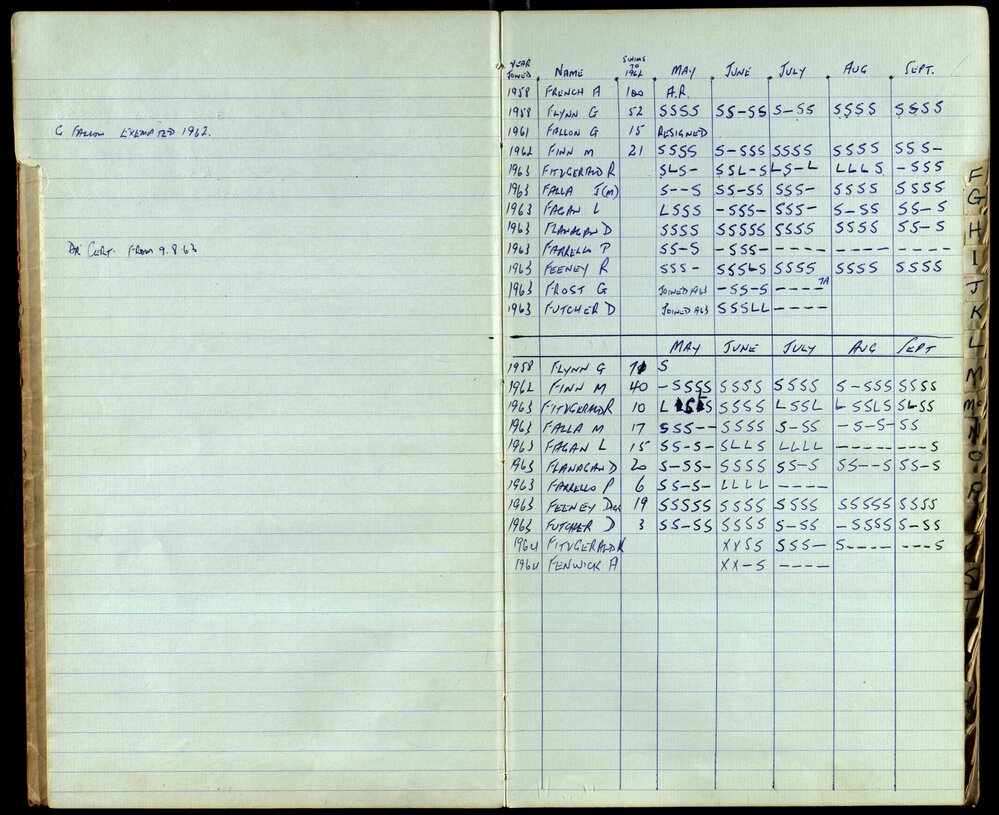 G FALLON EXEMPTED 1962.
DR CERT. FROM 9.8.63
YEAR JOINED NAME SWIMS TO 1962 MAY JUNE JULY AUG SEPT.
1958 FRENCH A 100 A.R.
1958 FLYNN G 52 SSSS SS-SS S-SS SSSS SSSS
1961 FALLON G 15 RESIGNED
1962 FINN M 21 SSSS S-SSS SSSS SSSS SSS-
1963 FITZGERALD R SLS- SSL-S LS-L LLLS -SSS
1963 FALLA J(M) S--S SS-SS SSS- SSSS SSSS
1963 FAGAN L LSSS -SSS- SSS- S-SS SS-S
1963 FLANAGAN D SSSS SSSSS SSSS SSSS SS-S
1963 FARRELLO P SS-S -SSS- ---- ---- ----
1963 FEENEY R SSS- SSSLS SSSS SSSS SSSS
1963 FROST G JOINED A63 -SS-S ----
1963 FUTCHER D JOINED A63 SSSLL ----
MAY JUNE JULY AUG SEPT
1958 FLYNN G S
1962 FINN M 40 -SSSS SSSS SSSS S-SSS SSSS
1963 FITZGERALD R 10 L SSSS LSSL L SSLS SLSS
1963 FALLA M 17 SSS-- SSSS S-SS -S-S- SS
1963 FAGAN L 15 SS-S- SLLS LLLL ----- ---S
1963 FLANAGAN D 20 S-SS- SSSS SS-S SS--S SS-S
1963 FARRELLO P 6 SS-S- LLLL ----
1963 FEENEY 19 SSSSS SSSS SSSS SSSSS SSSS
1963 FUTCHER D 3 SS-SS SSSS S-SS -SSSS S-SS
1964 FITZGERALD K XXSS SSS- S---- ---S
1964 FENWICK A XX-S ----
F
G
H
I
J
K
L
M
Mc
N
O
P
S
T